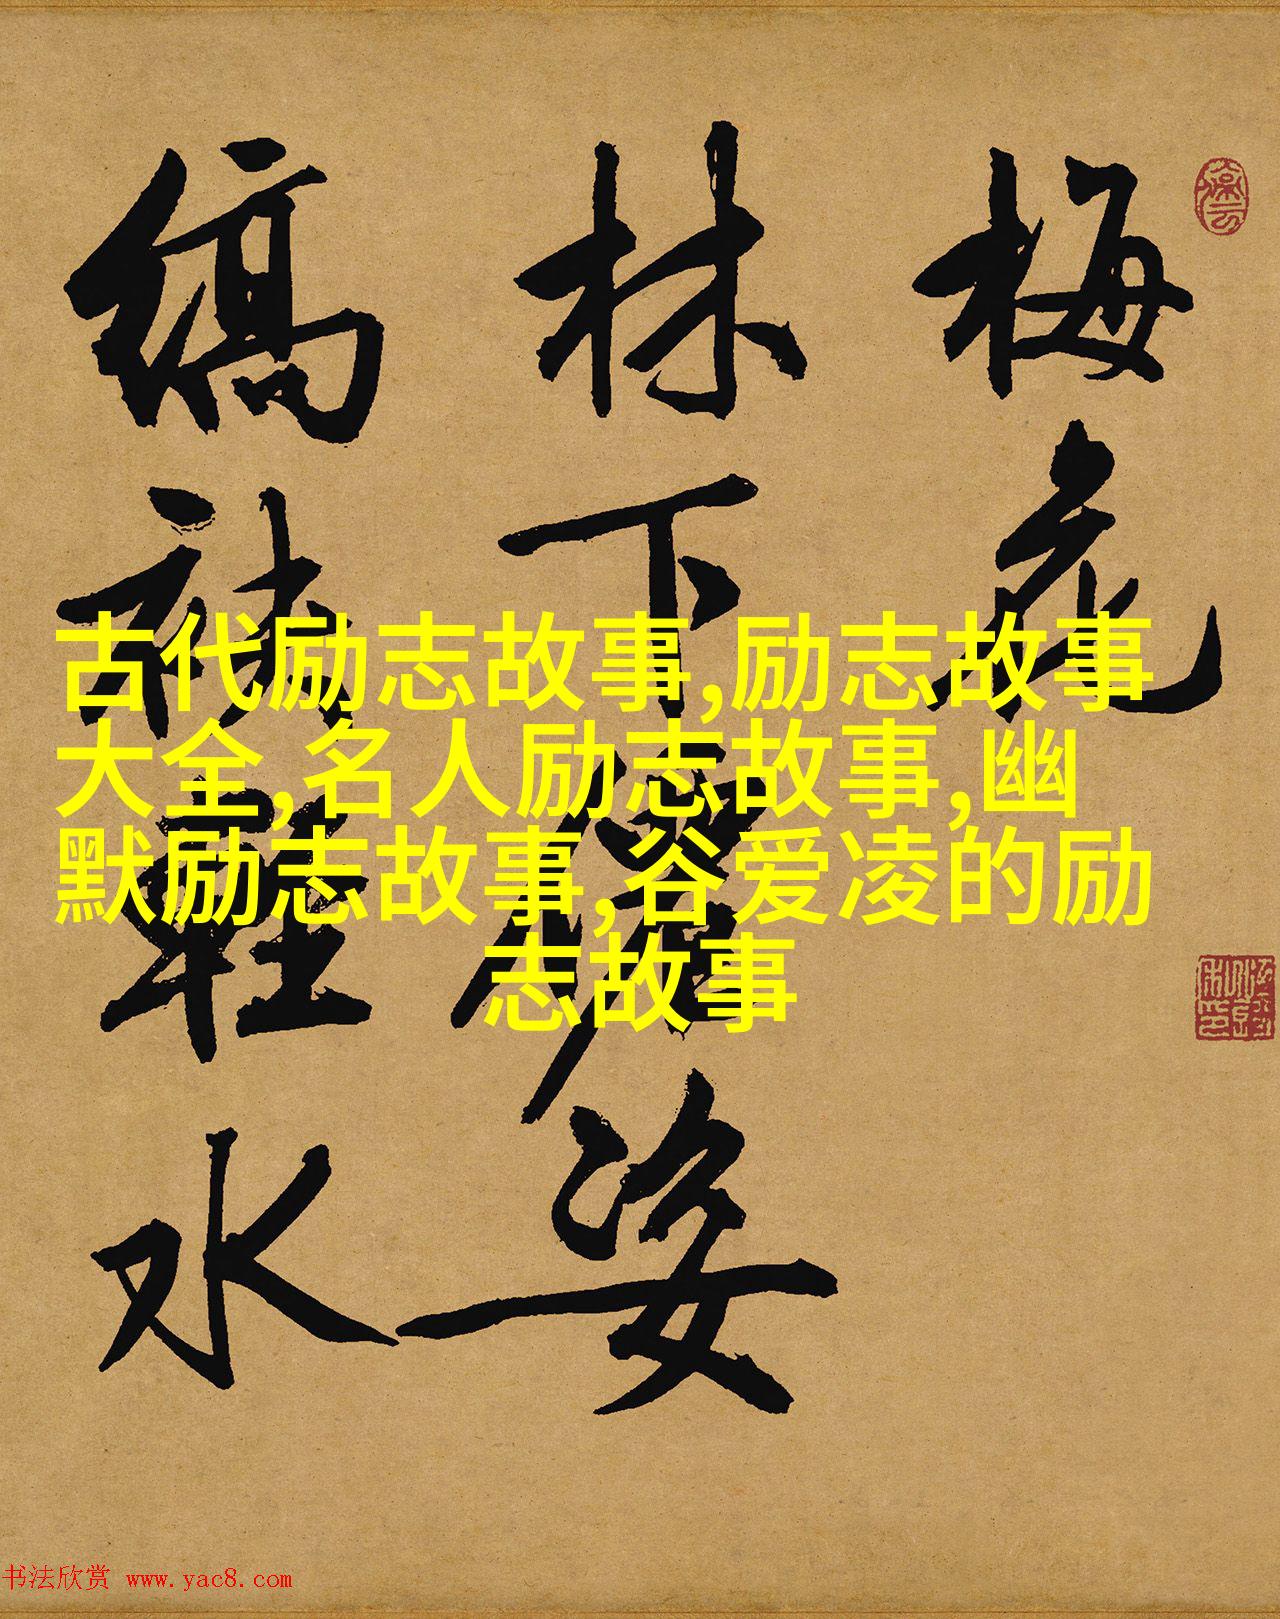 梅花
林下僊姿
縞袂輕水
古代励志故事,励志故事
大全,名人励志故事,幽
默励志故事,谷爱凌的励
志故事
书法欣赏 www.yac8.com